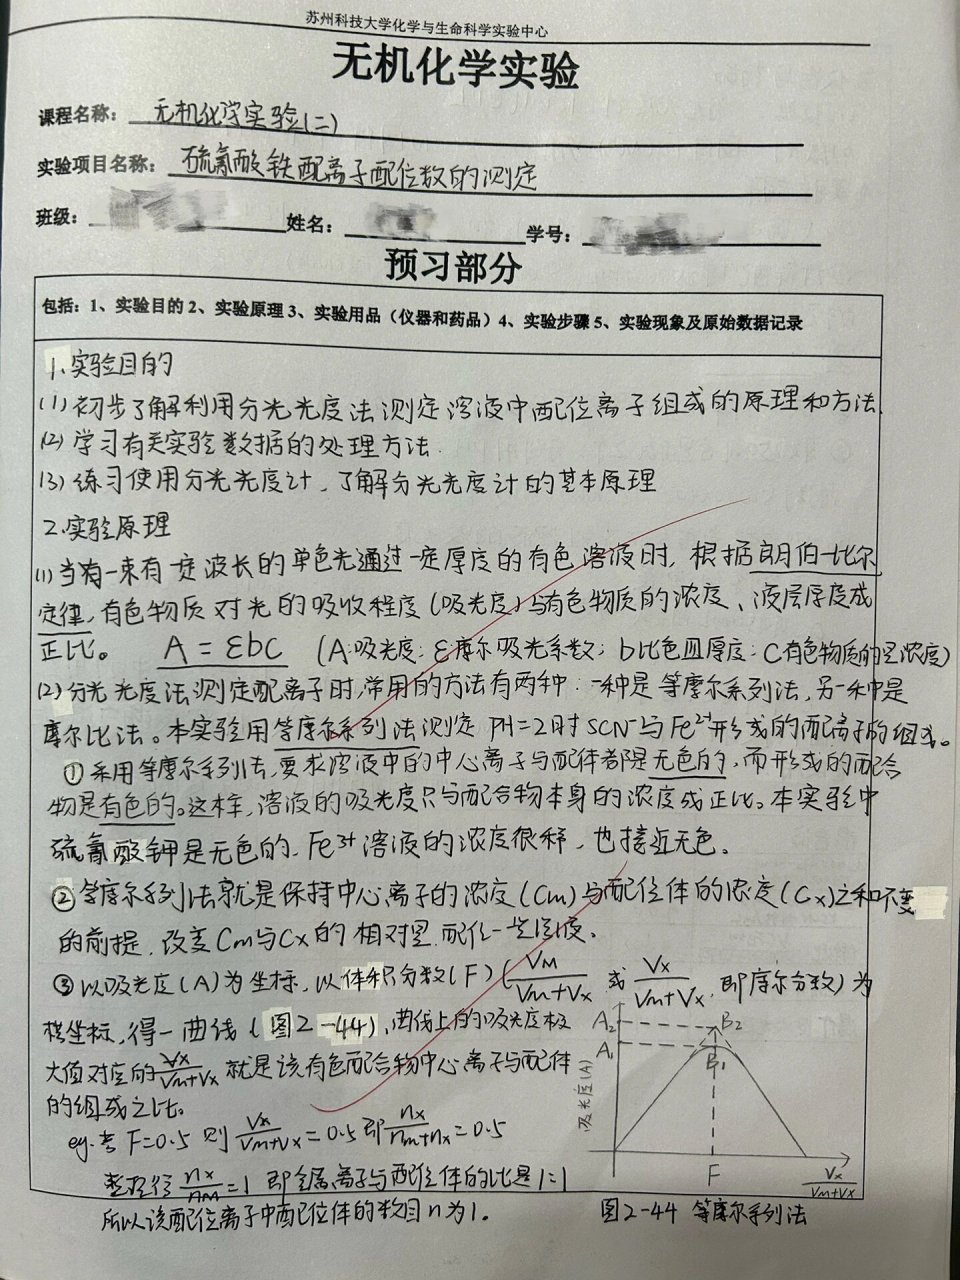 苏州科技大学化学与生命科学实验中心
无机化学实验
课程名称： 无机化学实验(二)
实验项目名称： 硫氰酸铁配离子配位数的测定
班级： 姓名： 学号：
预习部分
包括：1、实验目的 2、实验原理 3、实验用品（仪器和药品）4、实验步骤 5、实验现象及原始数据记录
1.实验目的
(1)初步了解利用分光光度法测定溶液中配位离子组成的原理和方法.
(2)学习有关实验数据的处理方法.
(3)练习使用分光光度计，了解分光光度计的基本原理
2.实验原理
(1)当有一束有一定波长的单色光通过一定厚度的有色溶液时，根据朗伯-比尔
定律，有色物质对光的吸收程度(吸光度)与有色物质的浓度、液层厚度成
正比。 A=εbC (A:吸光度；ε摩尔吸光系数；b比色皿厚度；C有色物质的量浓度)
(2)分光光度法测定配离子时，常用的方法有两种：一种是等摩尔系列法，另一种是
摩尔比法。本实验用等摩尔系列法测定 PH=2时SCN⁻与Fe²⁺形成的配离子的组成。
①采用等摩尔系列法，要求溶液中的中心离子与配体都是无色的，而形成的配合
物是有色的。这样，溶液的吸光度只与配合物本身的浓度成正比。本实验中
硫氰酸钾是无色的，Fe³⁺溶液的浓度很稀，也接近无色。
②等摩尔系列法就是保持中心离子的浓度(Cm)与配位体的浓度(Cx)之和不变
的前提，改变Cm与Cx的相对量，配化一些溶液。
③以吸光度(A)为坐标，以体积分数(F)(VM/Vm+Vx 或 Vx/Vm+Vx，即摩尔分数)为
横坐标，得一曲线(图2-44)，曲线上的吸光度极
大值对应的Vx/Vm+Vx就是该有色配合物中心离子与配体
的组成之比。
eg.若F=0.5 则 Vx/Vm+Vx=0.5 即 nx/nm+nx=0.5
整理得 nx/nM=1 即金属离子与配位体的比是1=1
所以该配位离子中配位体的数目n为1。
A₂ B₂
A₁ B₁
吸光度(A)
F Vx/Vm+Vx
图2-44 等摩尔系列法